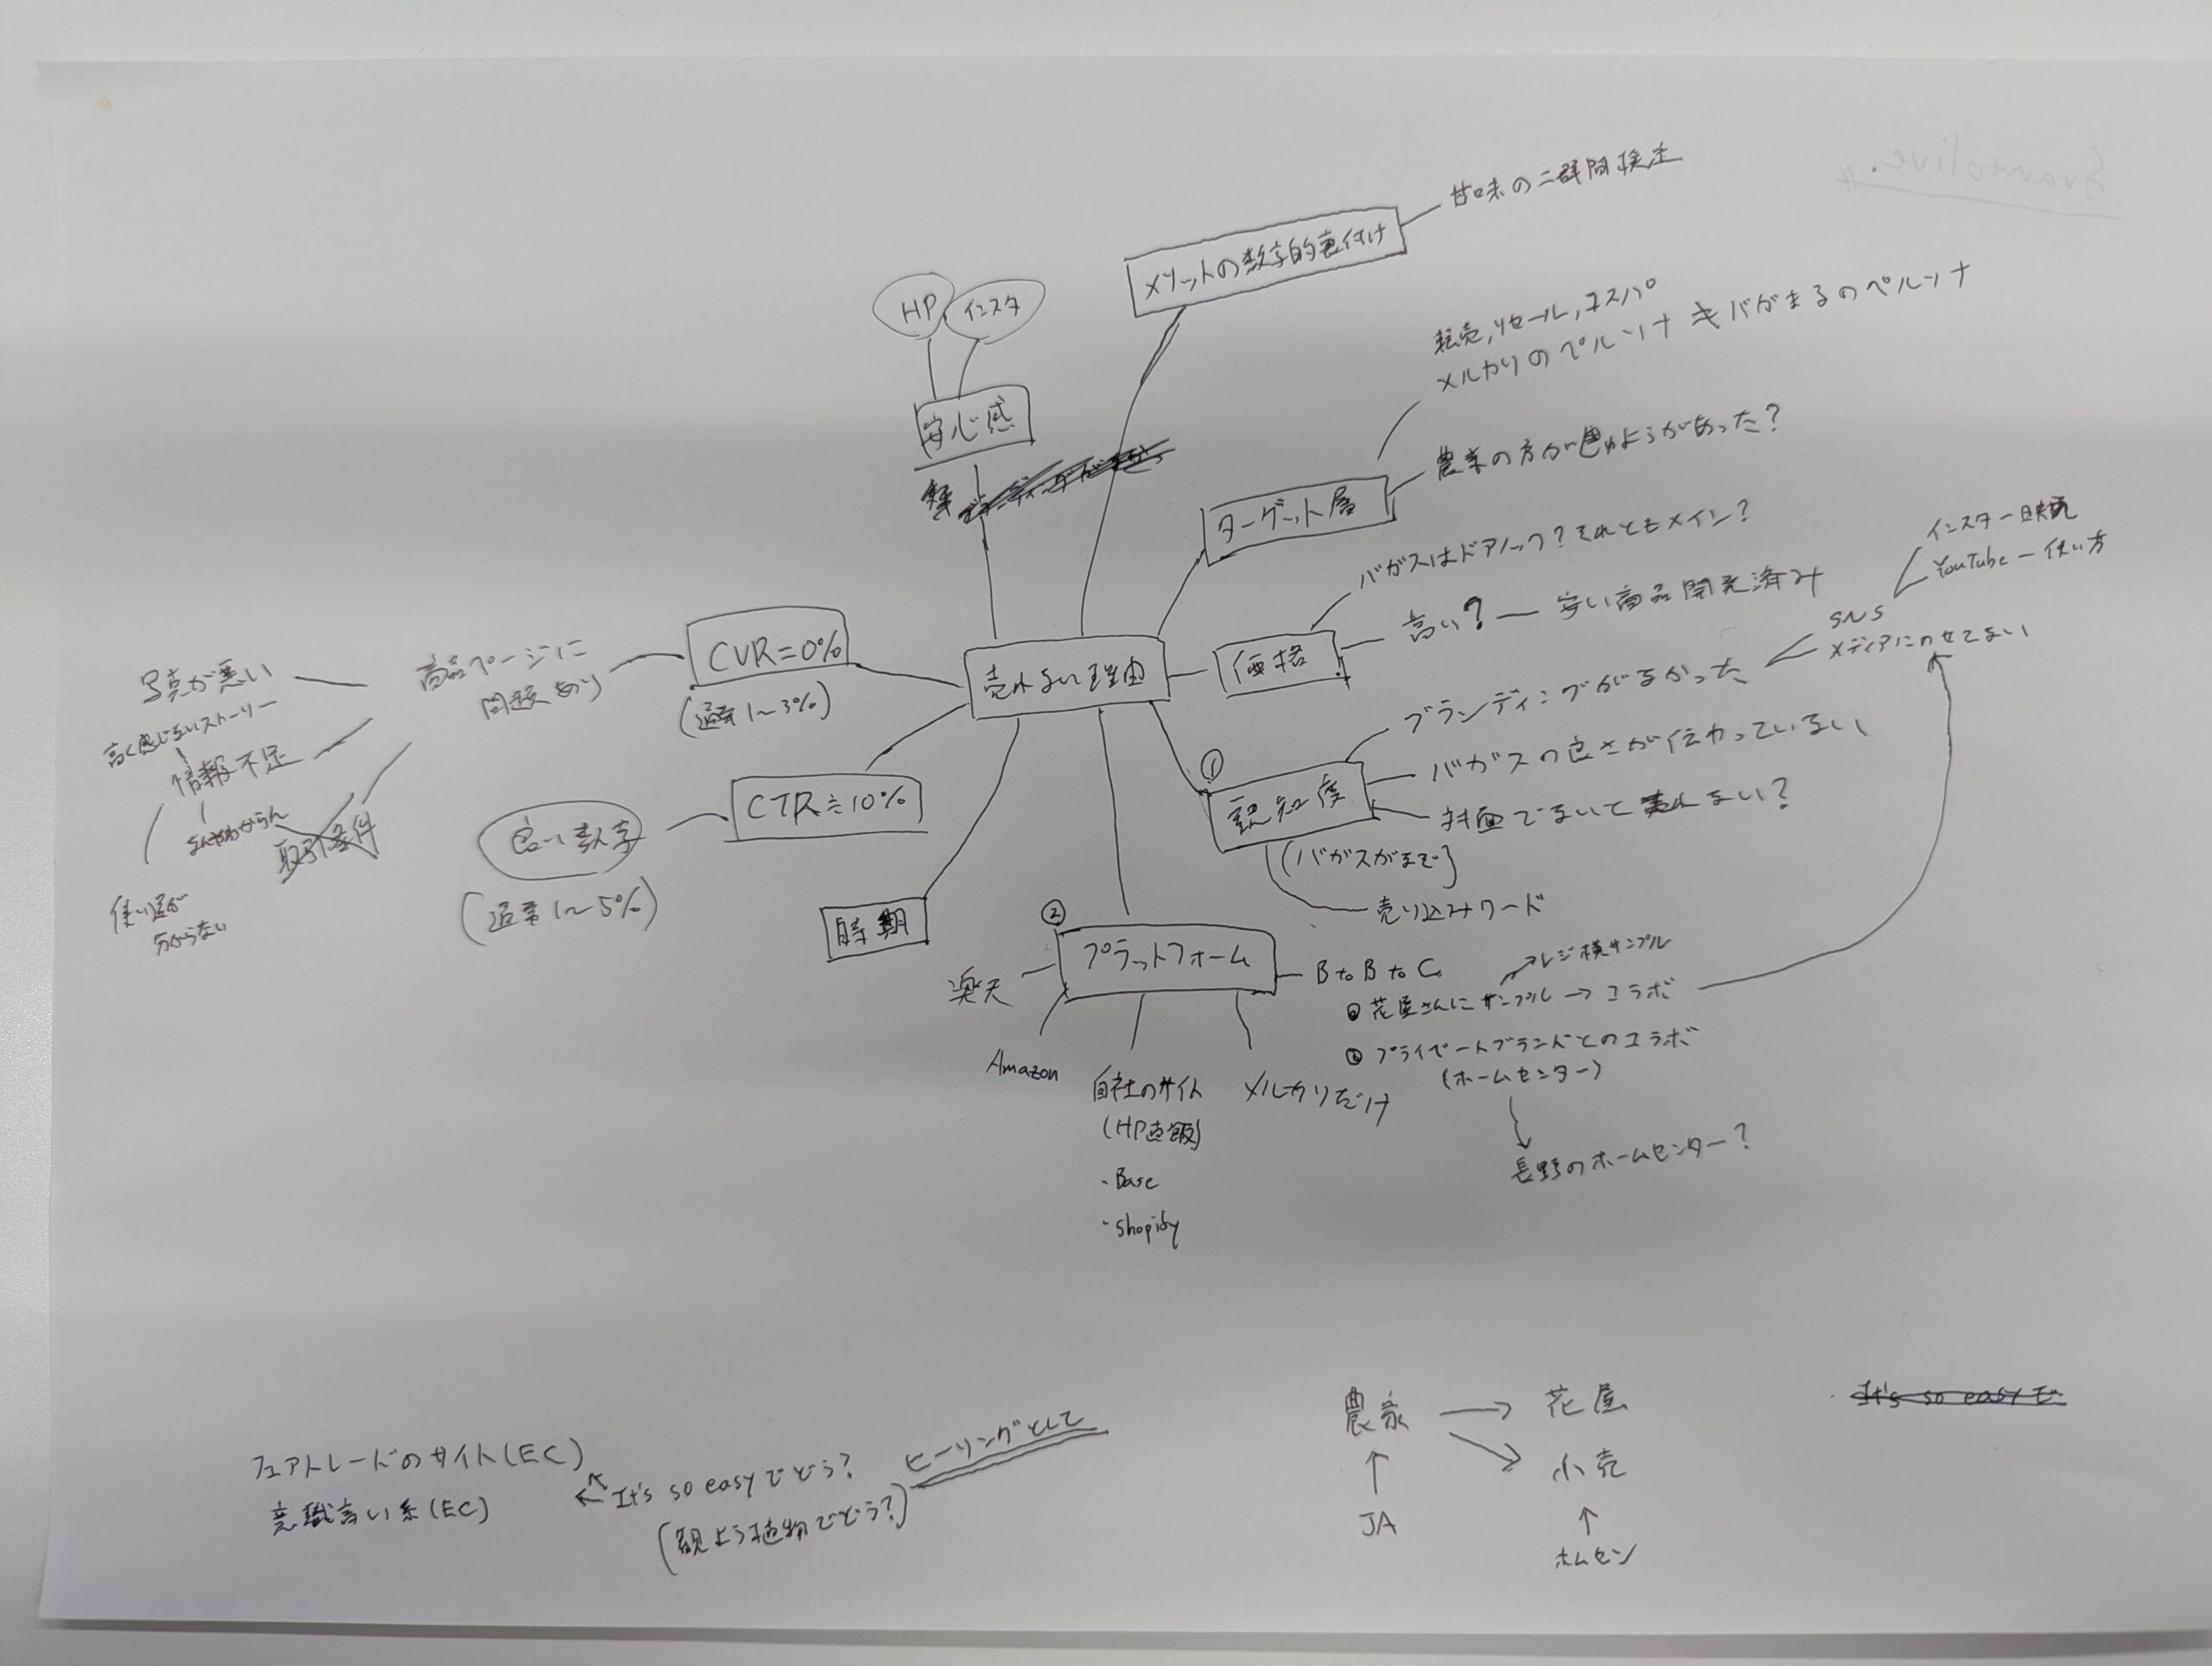 甘味の二群間検定
メリットの数字的裏付け
HP
インスタ
安心感
転売,リセール,コスパ
メルカリのペルソナ ≠ バガまるのペルソナ
農業の方が色めようがあった?
ターゲット層
バガスはドアノック?それともメイン?
高い? ― 安い商品開発済み
価格
インスタ ー 映え
YouTube ー 使い方
SNS
メディアにのせてない
売れない理由
CVR=0%
(通常1~3%)
商品ページに
問題あり
写真が悪い
高く感じないストーリー
情報不足
よくわからん
取引条件
使い道が
分からない
CTR≒10%
良い数字
(通常1~5%)
時期
①
認知度
(バガスがまだ)
ブランディングがなかった
バガスの良さが伝わっていない
対面でないと売れない?
売り込みワード
②
プラットフォーム
楽天
Amazon
自社のサイト
(HP直販)
・Base
・shopify
メルカリだけ
B to B to C
レジ横サンプル
花屋さんにサンプル → コラボ
プライベートブランドとのコラボ
(ホームセンター)
長野のホームセンター?
フェアトレードのサイト(EC)
意識高い系(EC)
It's so easyでどう?
(観よう植物でどう?)
ヒーリングとして
農家 → 花屋
小売
JA
ホムセン
It's so easy で